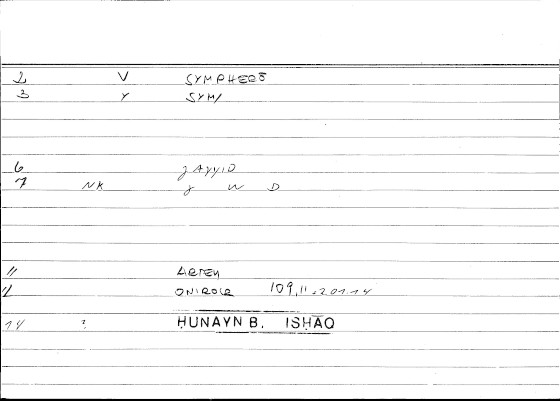 2 V SYMPHERŌ
3 Y SYM/
6 ǧAYYID
7 NK ǧ W D
11 ARTEM
12 ONIROCR 109,11 = 201.14
14 ? ḤUNAYN B. ISḤĀQ